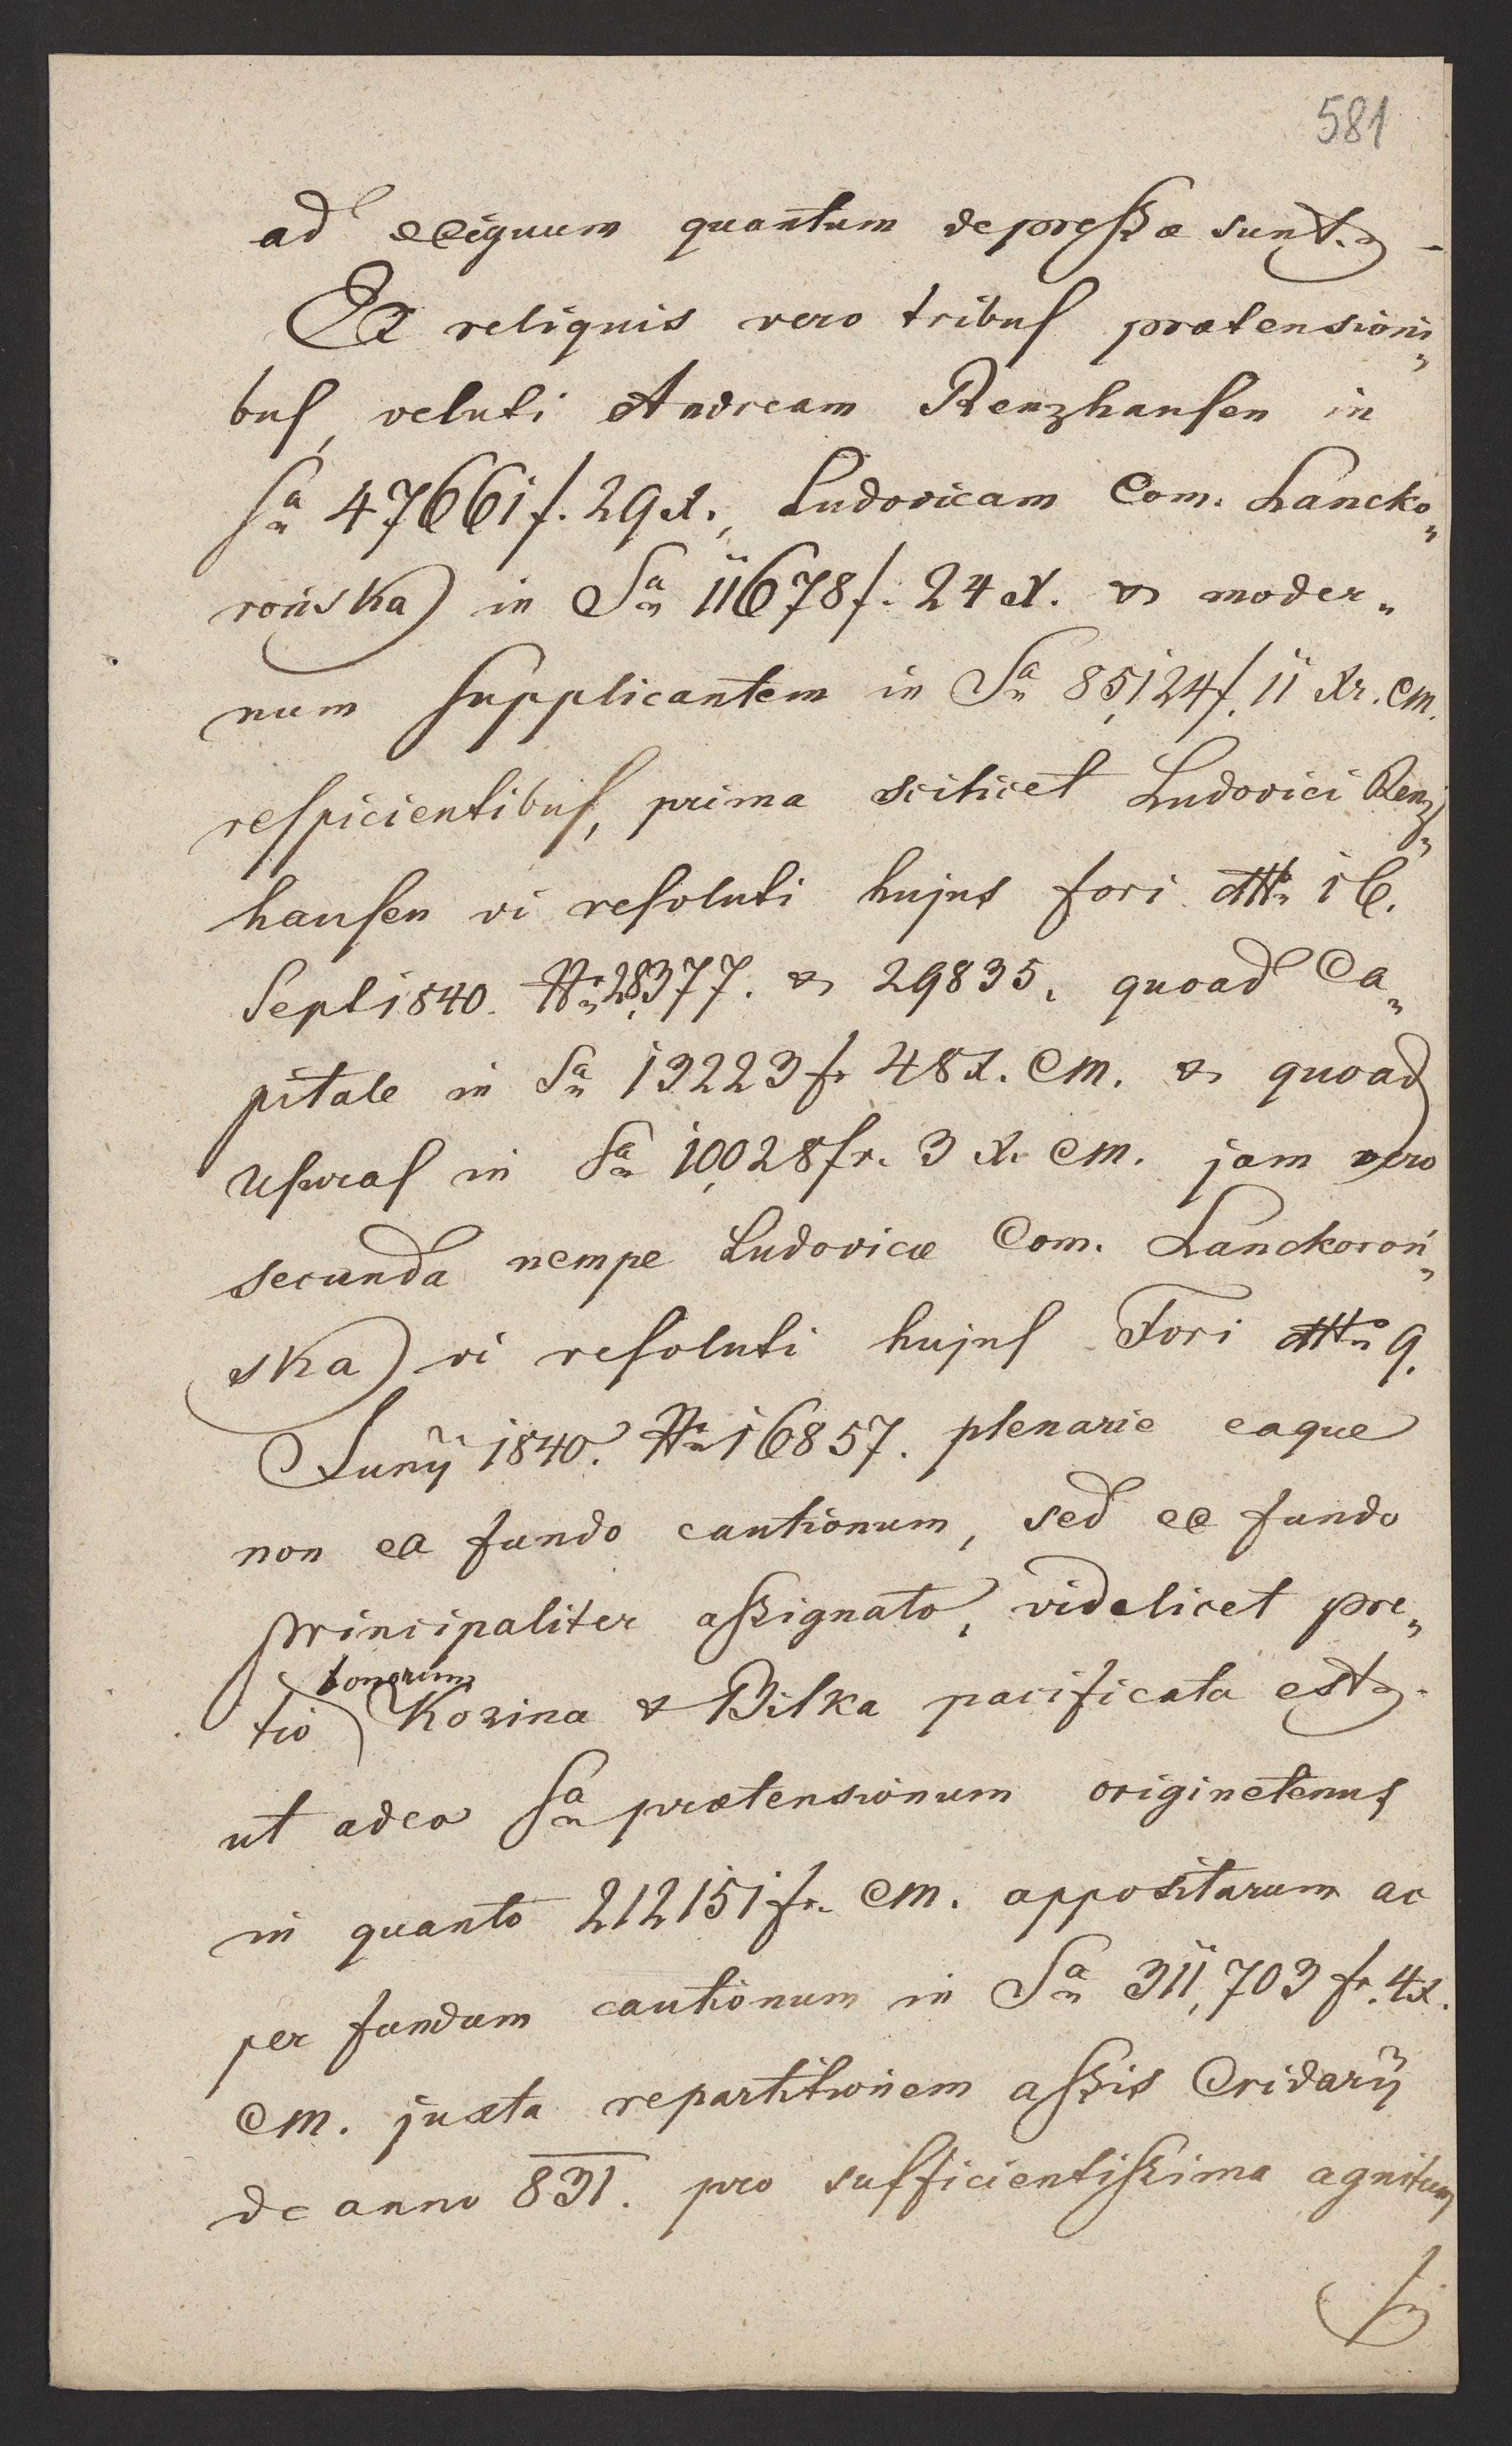 581
ad exiguum quantum depressæ sunt. –
Ex reliquis vero tribus prætensioni„
bus, veluti Andream Renzhausen in
Sa 47661 f. 29 x., Ludovicam Com. Lancko„
rońska in Sa 11678 f. 24 x. & moder„
num supplicantem in Sa 85,124 f. 11 xr. CM.
respicientibus, prima scilicet Ludovici Renz„
hausen vi resoluti hujus fori dtto 16.
Sept 1840. No 28,377. & 29835. quoad Ca„
pitale in Sa 13223 fr 48 x. CM. & quoad
usuras in Sa 10,028 fr. 3 x. CM. jam vero
secunda nempe Ludovicæ Com. Lanckoroń„
ska vi resoluti hujus Fori dtto 9.
Junÿ 1840. No 16857. plenarie eaque
non ex fundo cautionum, sed ex fundo
principaliter assignato, videlicet pre„
bonorum
tio Kozina & Bilka pacificata est.
ut adeo Sa prætensionum originetenus
in quanto 212151 fr. CM. appositarum ac
per fundum cautionum in Sa 311,703 fr. 4 x.
CM. juxta repartitionem assis Cridarÿ
de anno 831. pro sufficientissima agnitum